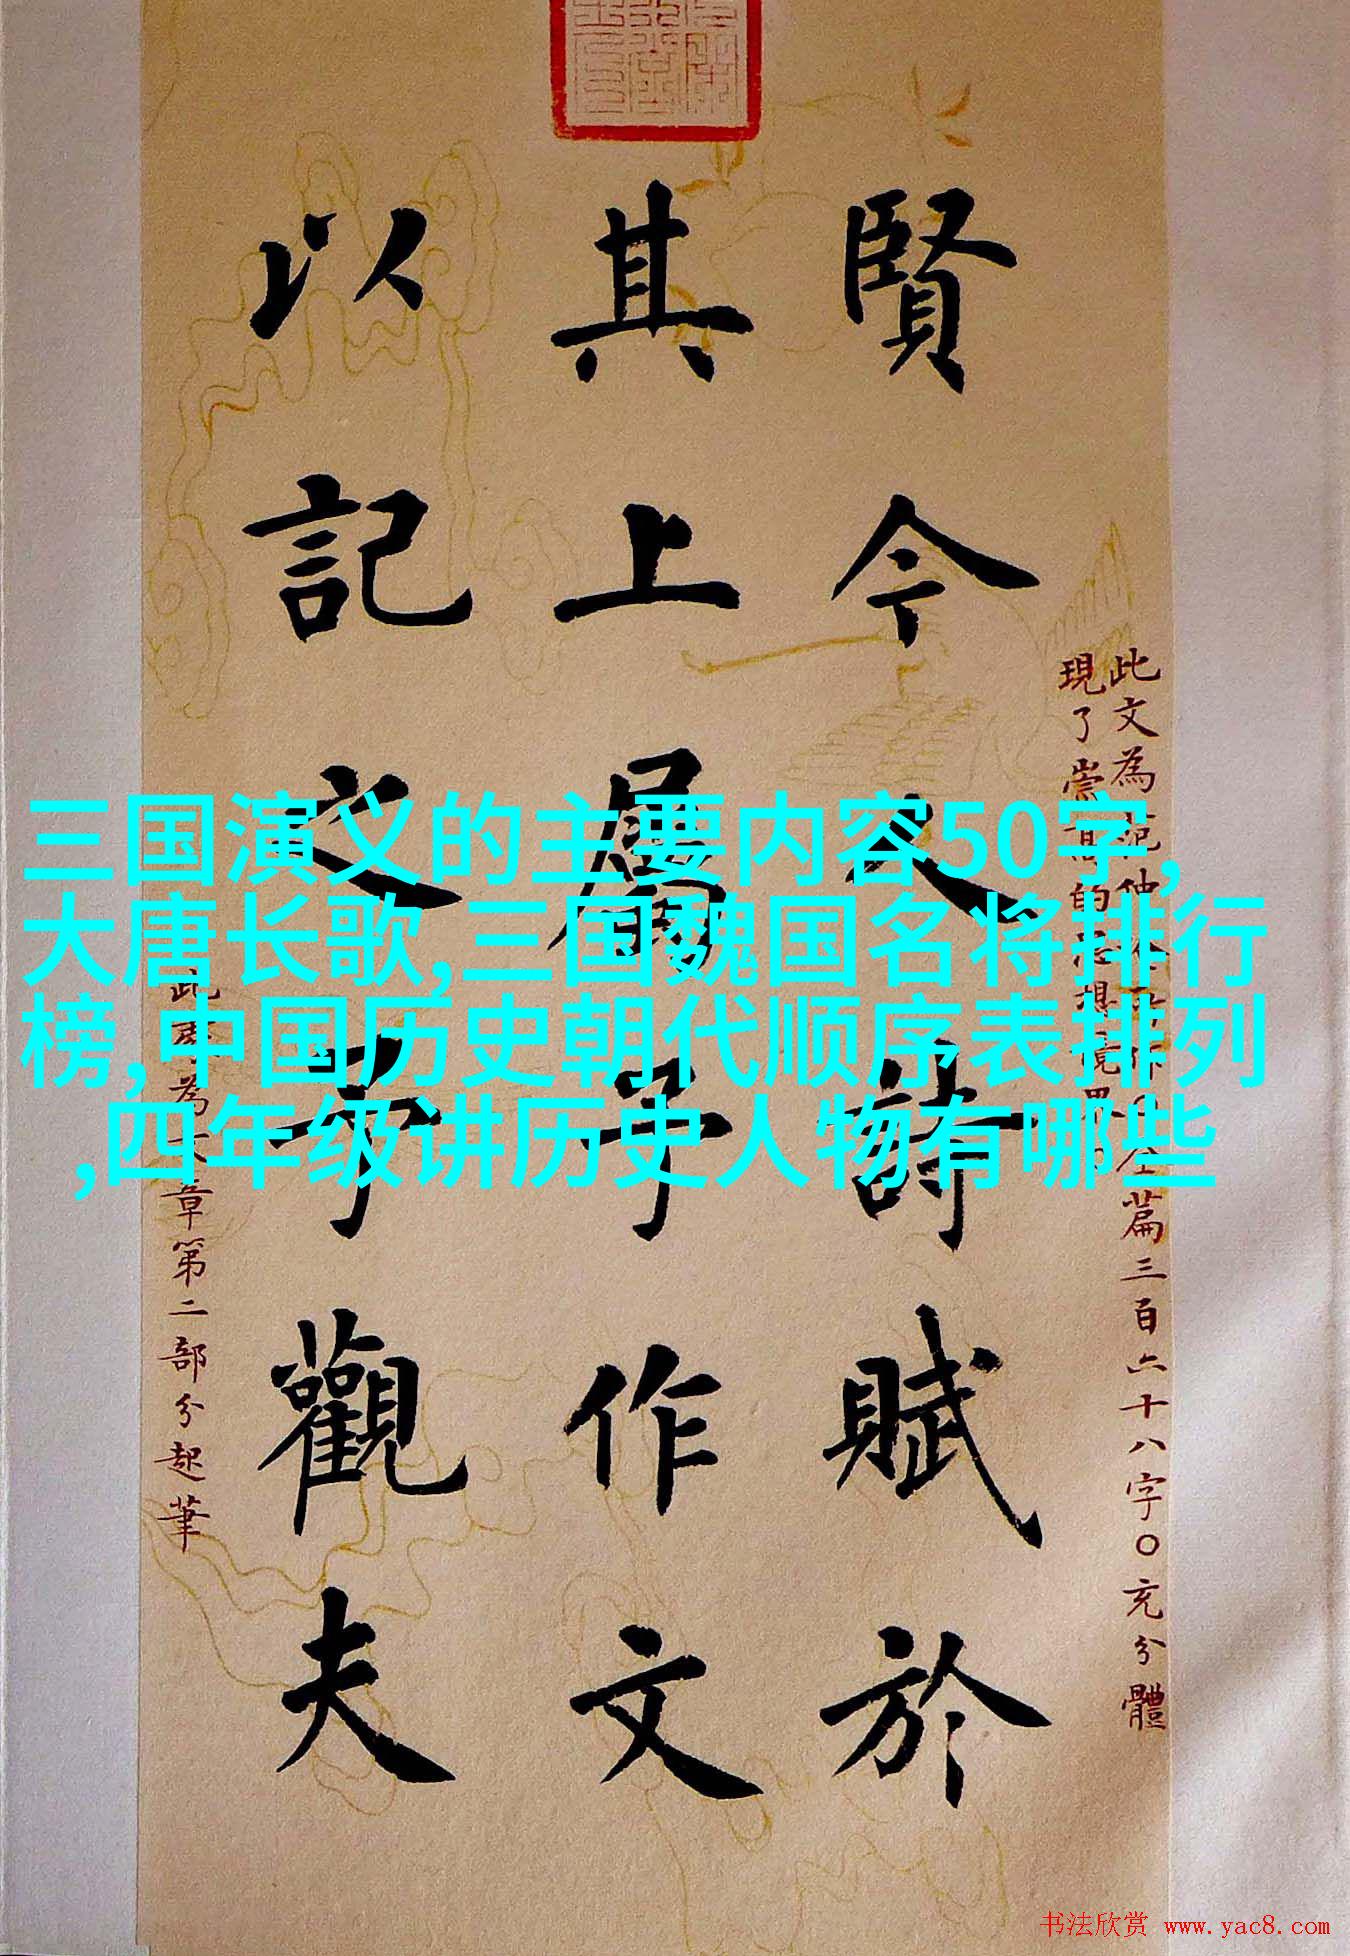 賢今人詩賦於
其上屬予作文
以記之予觀夫
此文為范仲作全篇三百六十八字〇充分體
現了崇高的思想境界
此為章第二部分起筆
三国演义的主要内容50字,
大唐长歌,三国魏国名将排行
榜,中国历史朝代顺序表排列
,四年级讲历史人物有哪些
书法欣赏 www.yac8.com